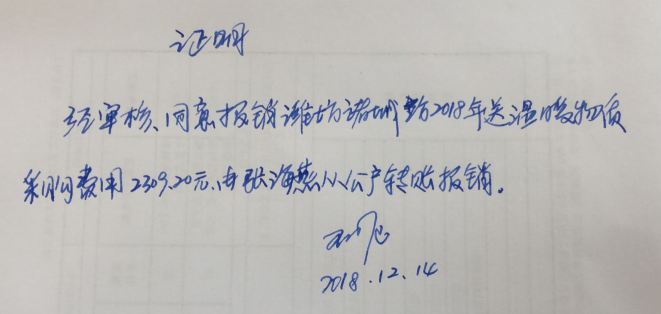 证明
经审核、同意报销潍坊诸城 2018年送温暖物质
采购费用2309.20元、由张海燕从公户转账报销。
2018.12.14